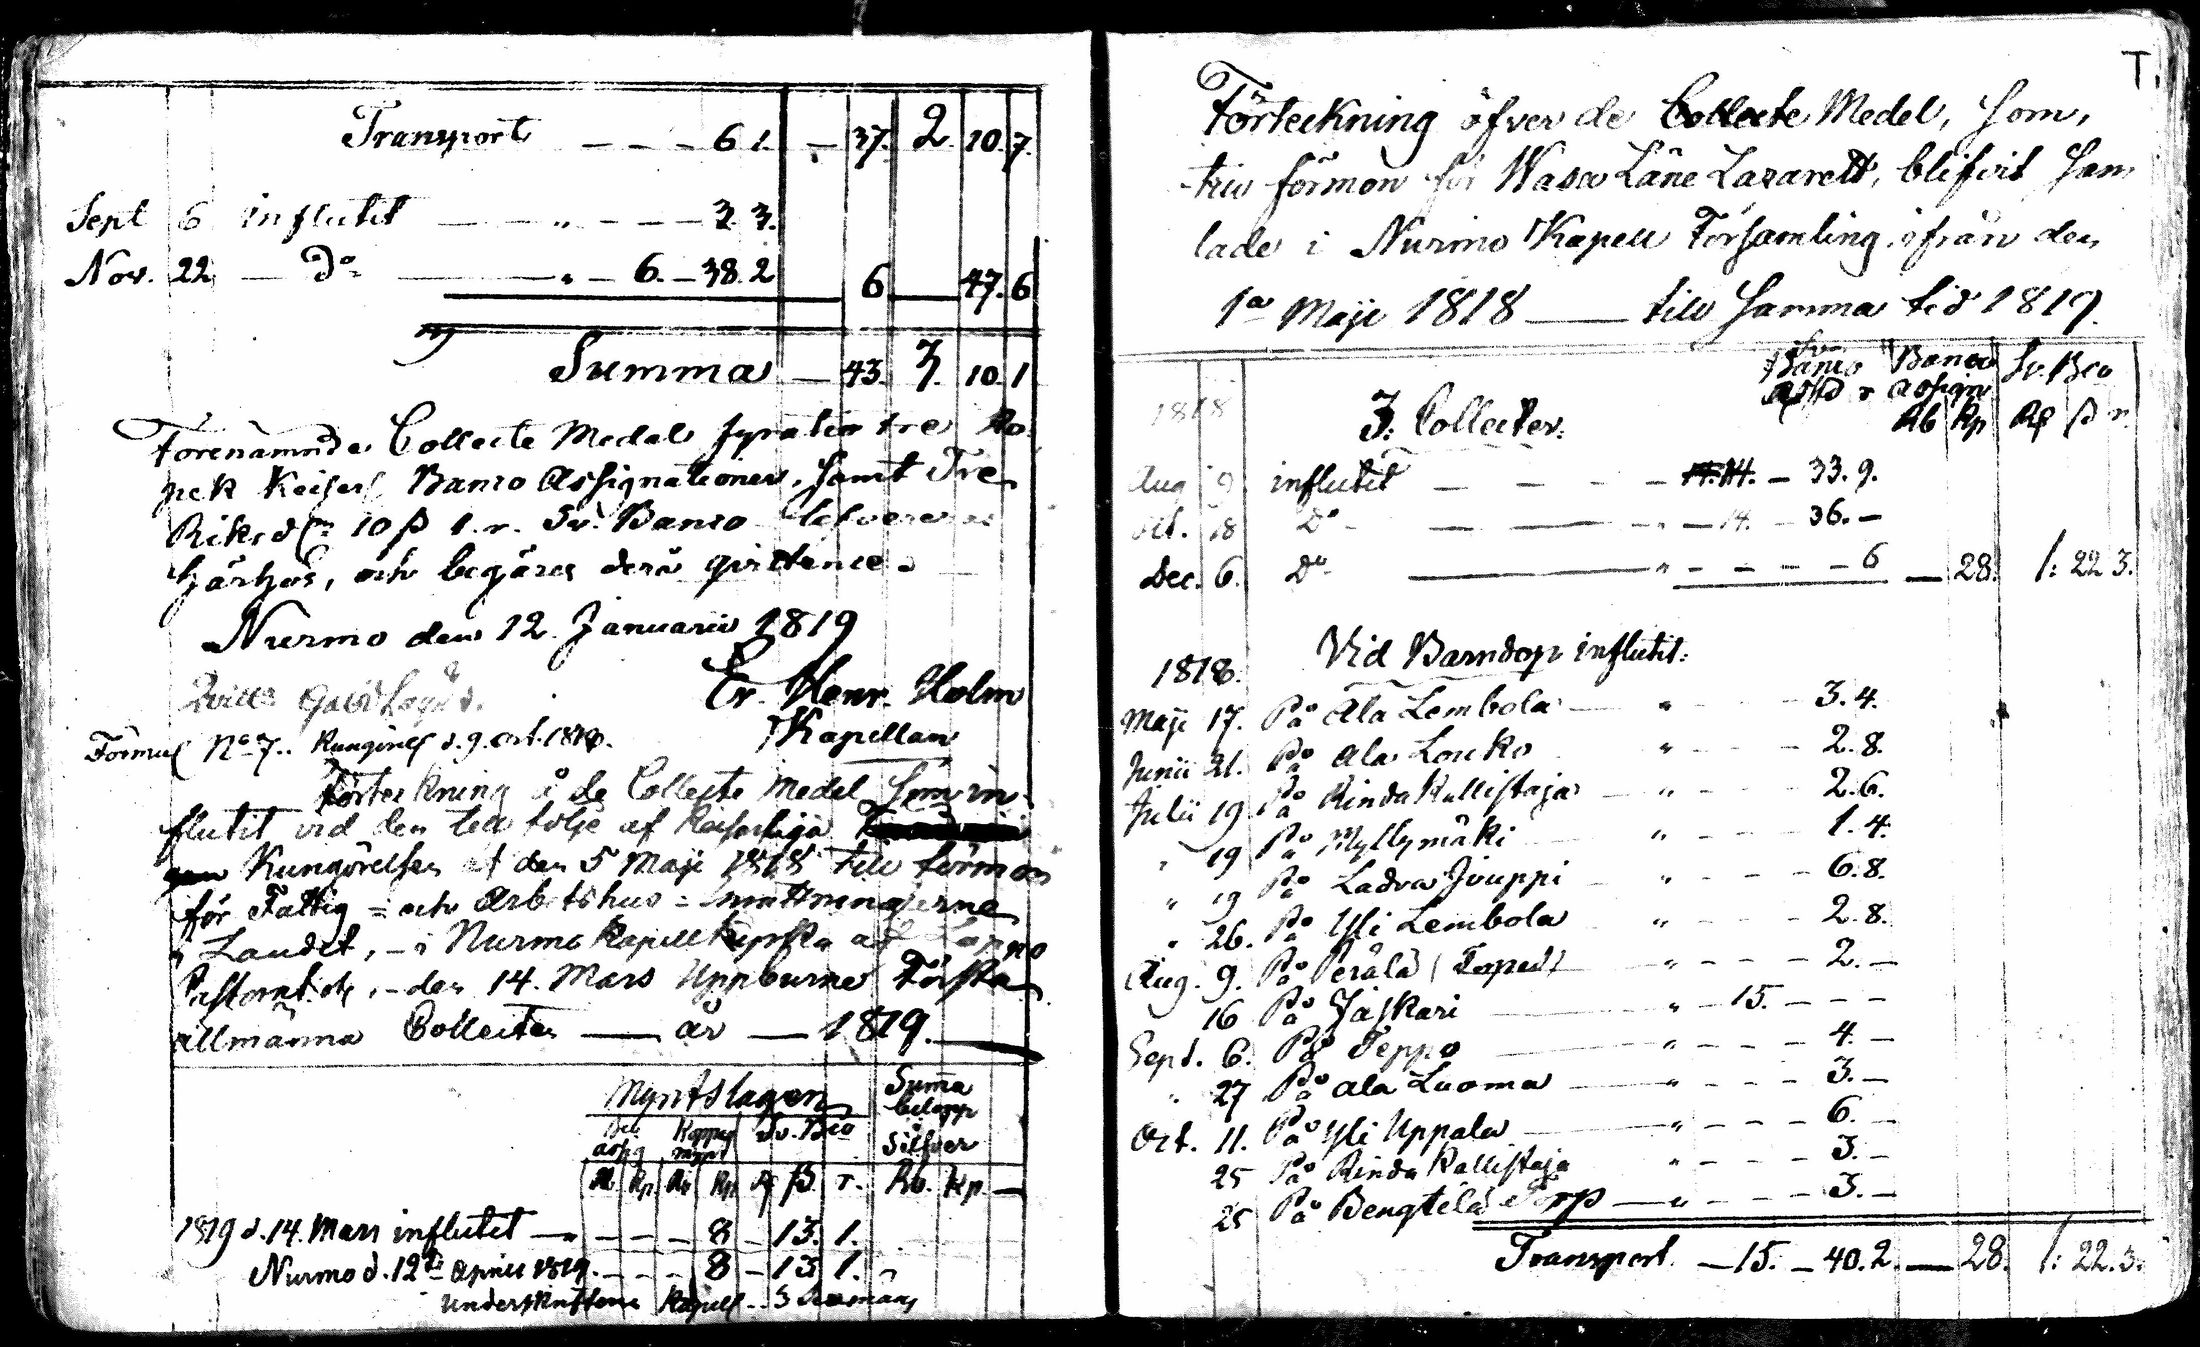 Transport — — — 6 1. — 37. 2. 10. 7.
Sept 6 influtit — — „ — — — 3. 3.
Nov. 22 — Do — „ — 6. — 38. 2 6 47. 6
Summa — 43. 3. 10. 1
Förenämnde Collecte Medel fyratio tre Ko-
pek Keiserl. Banco Assignationer, samt Tre
Riksd. 10 ß 1. r. Sv. Banco lefvereras
härhos, och begäres derå qvittence.
Nurmo den 12. Januarii 1819
Er. Henr. Holm
Kapellan
Formul. No 7.. Kungörels. d. 9. Oct. 1818.
Förteckning å de Collecte Medel som in-
flutit vid den till följe af Keiserliga
Kungörelsen af den 5 Maji 1818 till förmon
för Fattig- och Arbetshus-Inrättningarne
i Landet, - i Nurmo Kapell Kyrka af Lappo
- den 14. Mars Uppburne Första
allmänna Collecten — år — 1819.
Myntslagen Summa
belopp
Kopp. Sv. Bco
Silfver
Rb. Kp. Rb. Kp. ß. r. Rb. Kp. —
1819 d. 14. Mars influtit — — — 8 — 13. 1.
Nurmo d. 12te April 1819. — — — 8 — 13 1.
T.
Förteckning öfver de Collecte Medel, som,
till förmon för Wasa Läne Lazarett, blifvit sam
lade i Nurmo Kapell Församling, ifrån den
1a Maji 1818 — till samma tid 1819.
Banco Banco Sv. Bco
Assign
Rb Kp ß r.
1818 3. Collecter.
Aug 9. influtit — — — — 33. 9.
Oct. 18 Do — — „ — 14. — 36. —
Dec. 6. Do — „ — — — — 6 — 28. 1: 22 3.
1818. Vid Barndop influtit:
Maji 17. På Ala Lembola — „ — — 3. 4.
Junii 21. På Ala Louko „ — — — 2. 8.
Julii 19 På Rinda Kallistaja — „ — — 2. 6.
„ 19 På Myllymäki — „ — — — 1. 4.
„ 19 På Ladva Jouppi — „ — — — 6. 8.
„ 26. På Yli Lembola „ — — — 2. 8.
Aug. 9. På Perälä (Torpet) — „ — — — 2. —
16 På Jäskari — „ — 15. — — —
Sept. 6. På Seppo — „ — — — 4. —
„ 27 På Ala Luoma — „ — — — 3. —
Oct. 11. På Yli Uppala — „ — — — 6. —
25 På Rinda Kallistaja „ — — — 3. —
25 På Bengtilä Torp — „ — — — 3. —
Transport. — 15. — 40. 2. — 28. 1: 22. 3.